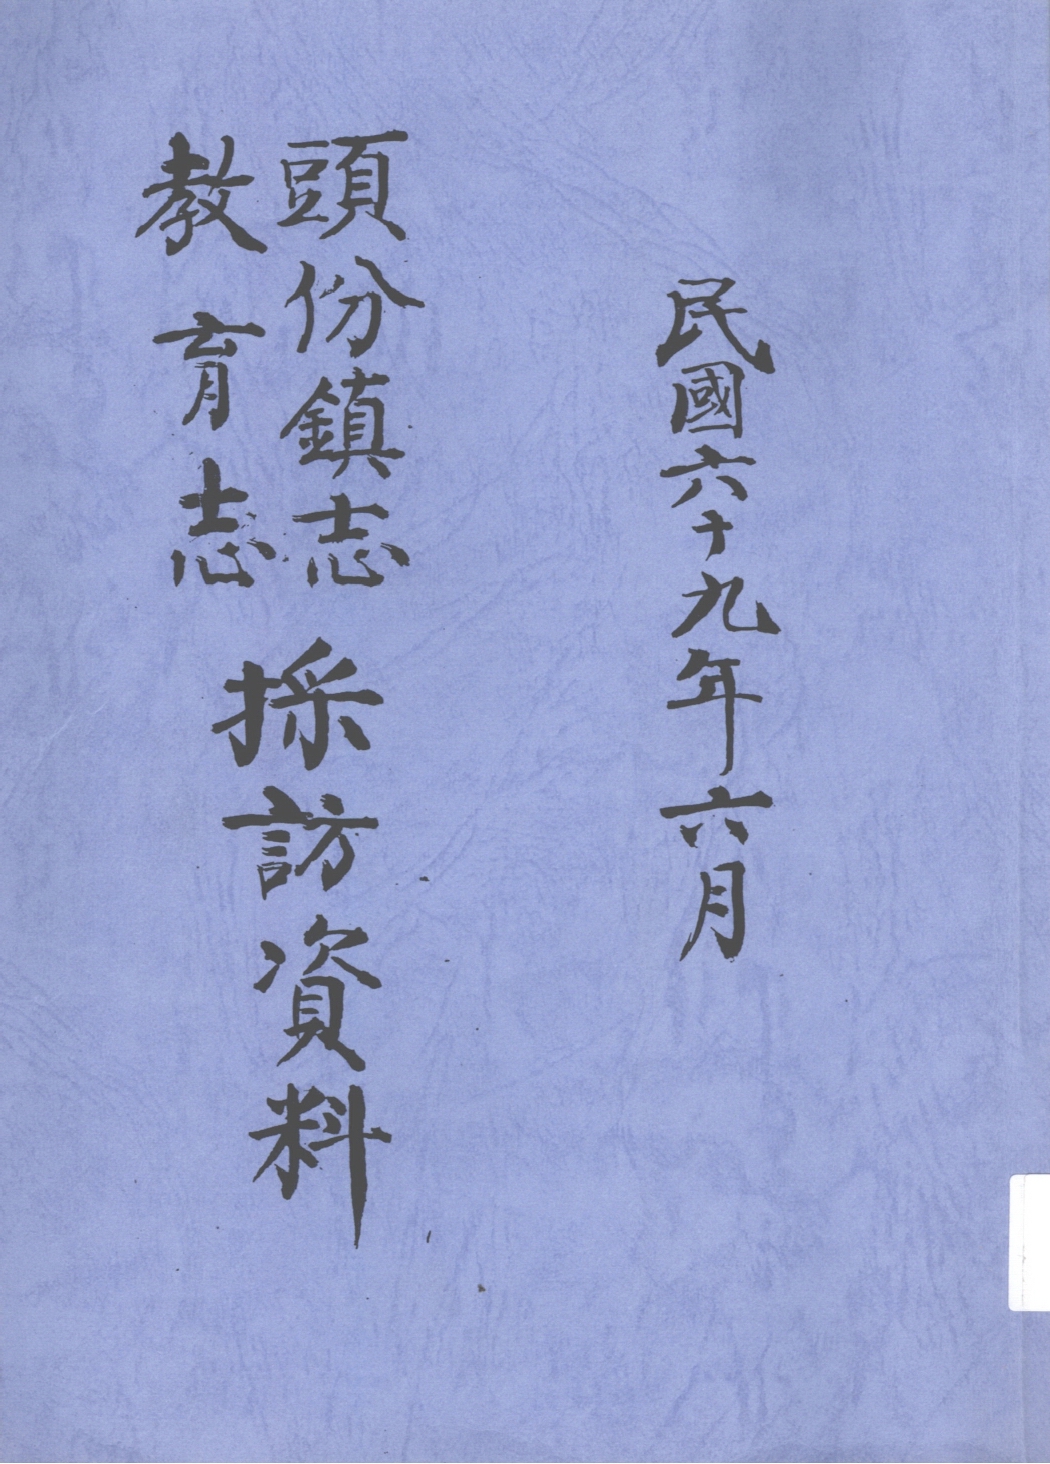 民國六十九年六月
頭份鎮志
教育志
採訪資料